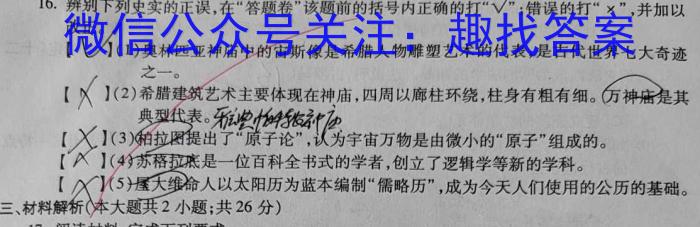 16. 辨别下列史实的正误,在“答题卷”该题前的括号内正确的打“√”;错误的打“×”,并加以
微信公众号关注:趣找答案
【 】(1)奥林匹亚神庙中的宙斯像是希腊人物雕塑艺术的代表,是古代世界七大奇迹
之一。
【 X 】(2)希腊建筑艺术主要体现在神庙,四周以廊柱环绕,柱身有粗有细。万神庙是其
典型代表。
【 X 】(3)柏拉图提出了“原子论”,认为宇宙万物是由微小的“原子”组成的。
【 X 】(4)苏格拉底是一位百科全书式的学者,创立了逻辑学等新的学科。
【 X 】(5)屋大维命人以太阳历为蓝本编制“儒略历”,成为今天人们使用的公历的基础。
三、材料解析(本大题共2小题;共26分)